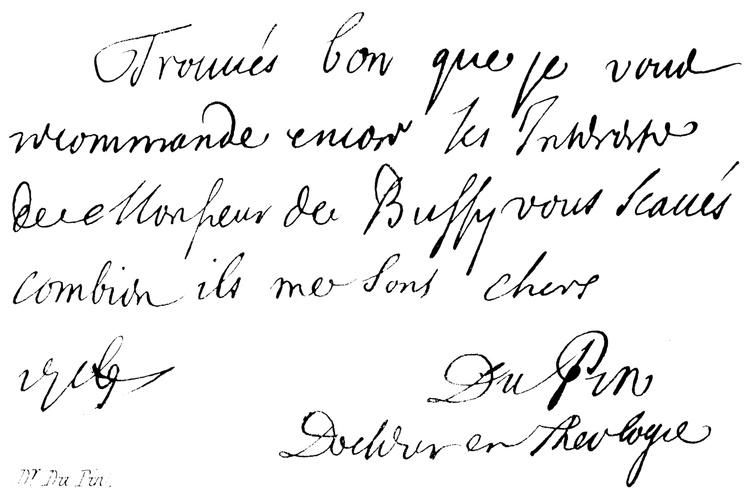 Trouués bon que je vous
recommande encor les Interets
de Monsieur de Bussy vous scaués
combien ils me sont chers
Du Pin
Docteur en theologie
Dr. Du Pin.